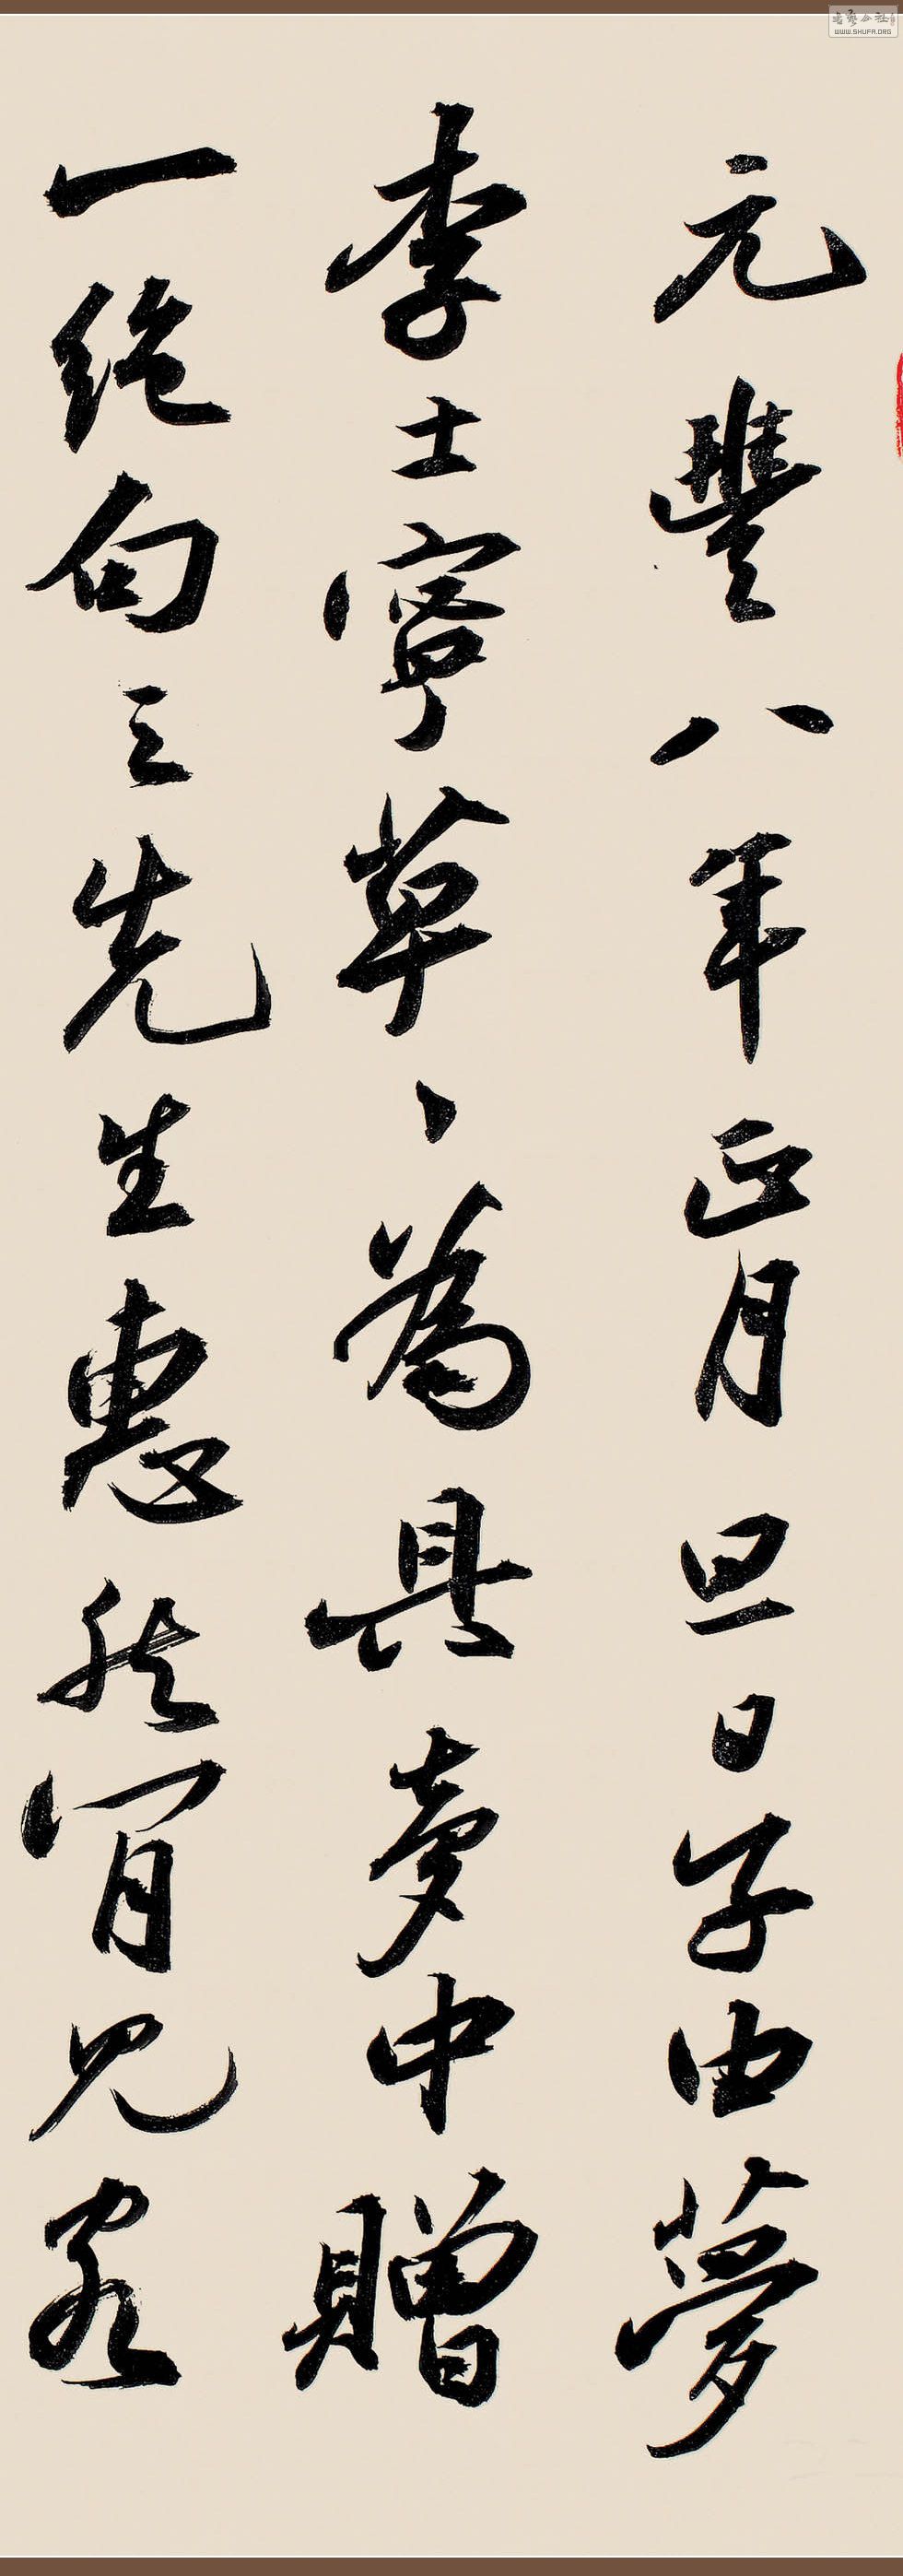 元豐八年正月旦日子由夢
李士寧草、為具夢中贈
一絕句云先生惠然肯見客
WWW.SHUFA.ORG